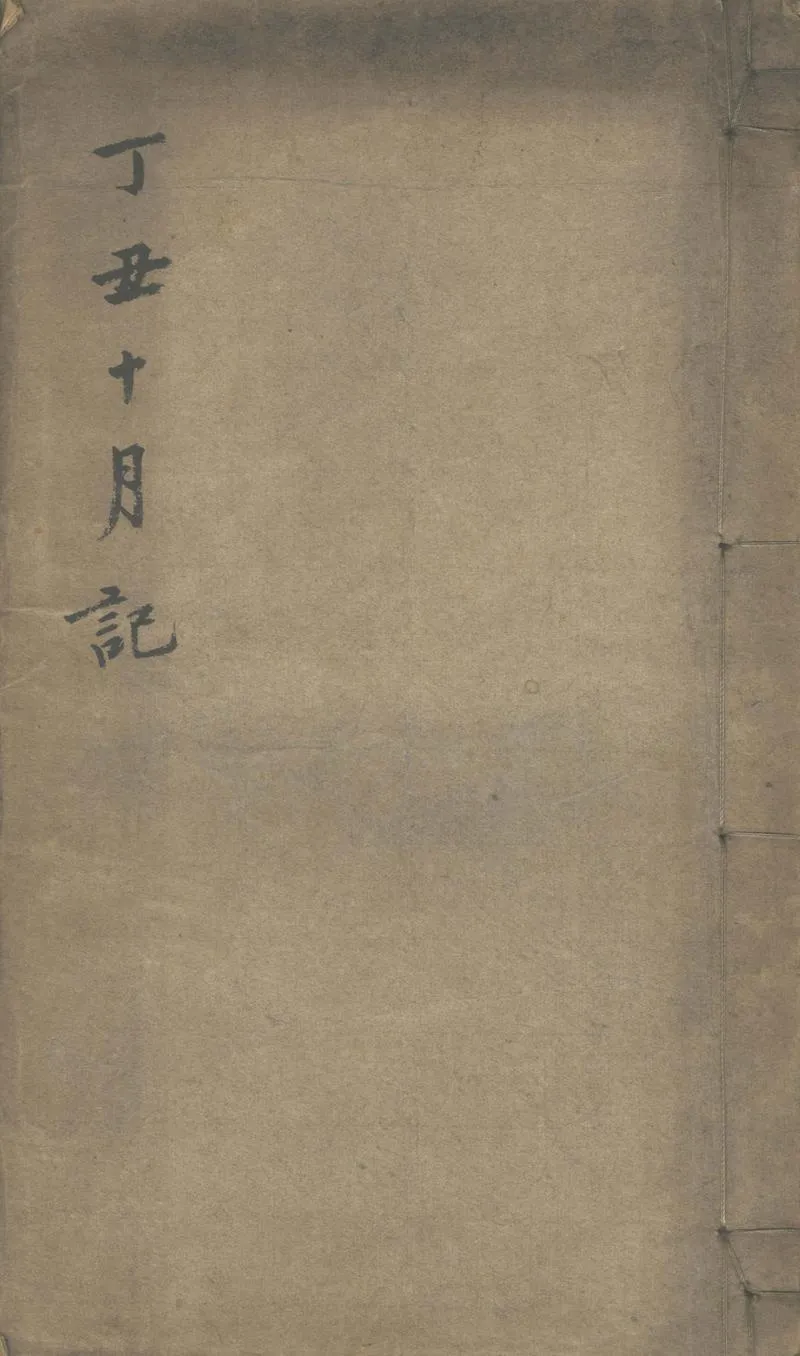 丁丑十月記